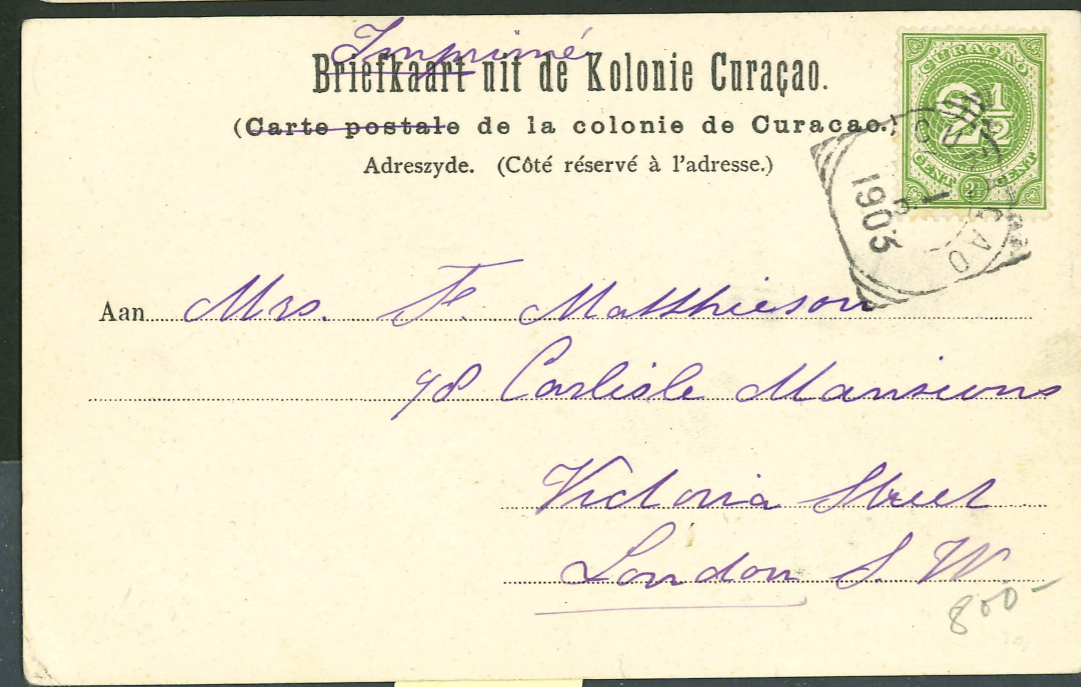 Imprimé
Briefkaart uit de Kolonie Curaçao.
(Carte postale de la colonie de Curacao.)
Adreszyde. (Côté réservé à l'adresse.)
CURAÇAO
2 1/2
CENT 2½ CENT
CURACAO
1903
Aan Mrs. F. Matthieson
98 Carlisle Mansions
Victoria Street
London S. W
800-